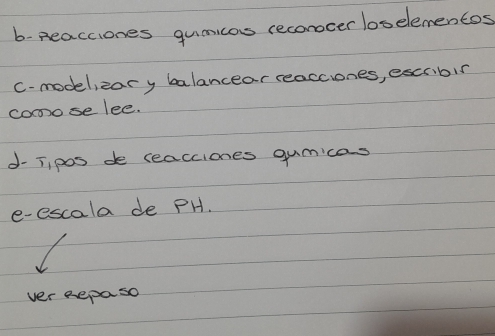 b- Reacciones quimicas reconocer los elementos
c- modelizar y balancear reacciones, escribir
como se lee.
d- Tipos de reacciones quimicas
e- escala de PH.
ver Repaso